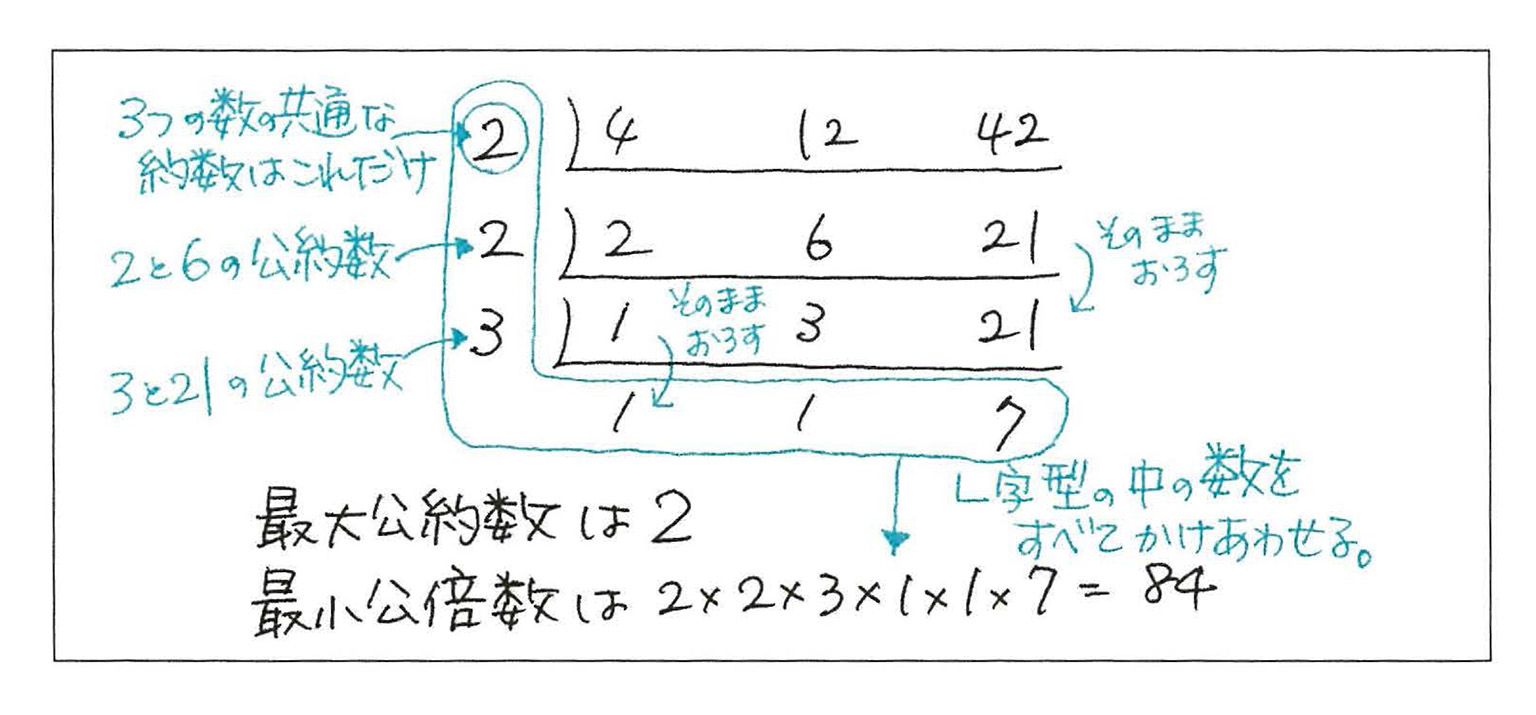 3つの数の共通な
約数はこれだけ
2 ) 4 12 42
2と6の公約数
2 ) 2 6 21
そのまま
おろす
3と21の公約数
3 ) 1 3 21
そのまま
おろす
1 1 7
L字型の中の数を
すべてかけあわせる。
最大公約数は2
最小公倍数は 2×2×3×1×1×7=84